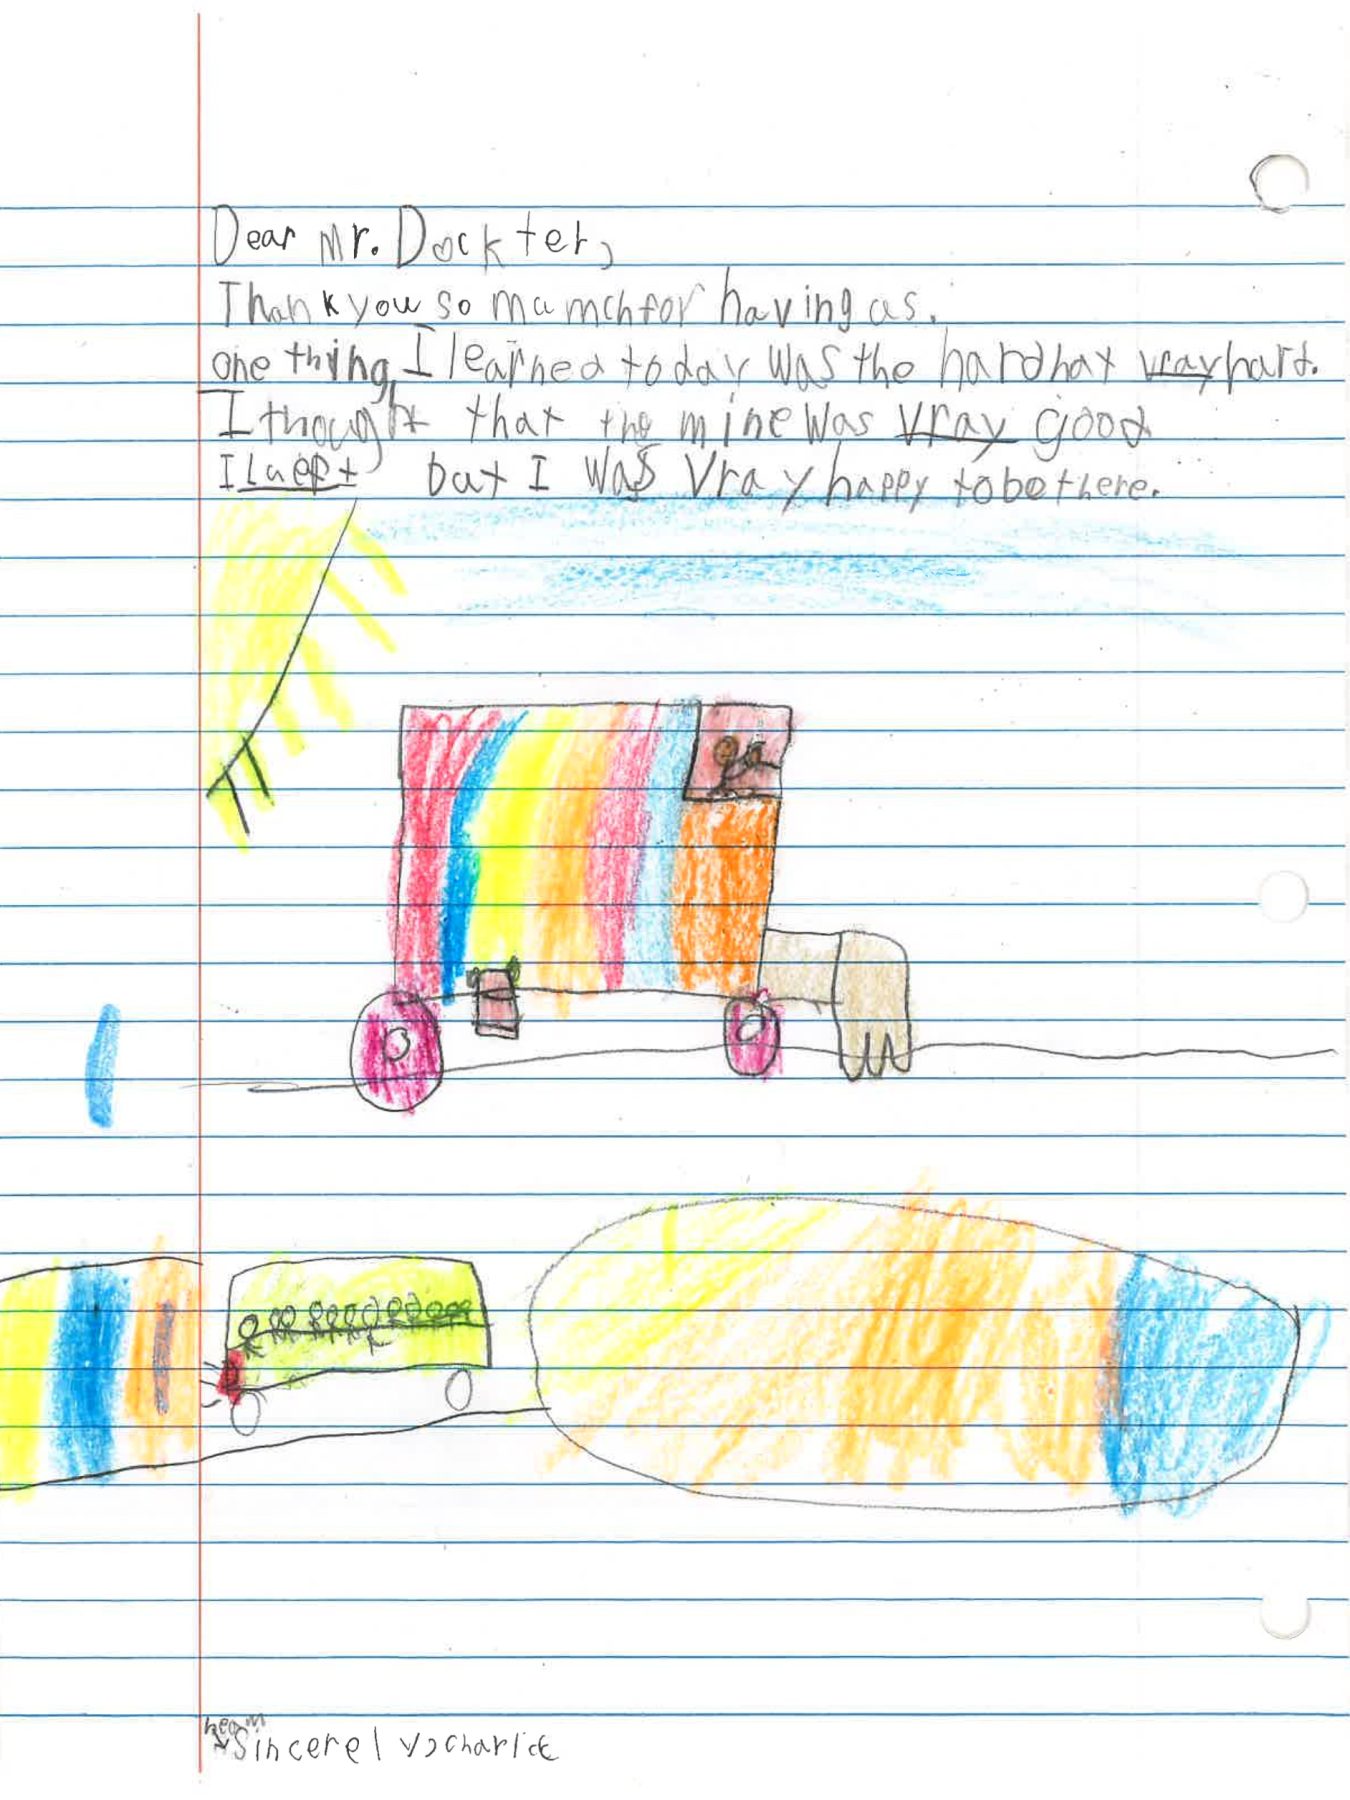 Dear Mr. Dockter,
Thank you so mumch for having as.
one thing, I learned today was the hardhat vray hard.
I thought that the mine was vray good
I Laeft but I was vray happy to be there.
Sincerely, Charlie